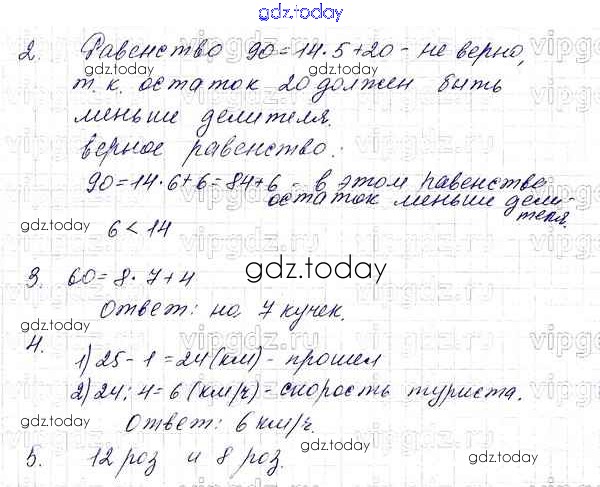 gdz.today
2. Равенство 90=14·5+20 - не верно,
т.к. остаток 20 должен быть
меньше делителя.
верное равенство:
90=14·6+6=84+6 - в этом равенстве
остаток меньше дели-
теля.
gdz.today 6<14
gdz.today
3. 60=8·7+4
Ответ: на 7 кучек.
gdz.today
4.
1) 25-1=24(км)- прошел
2) 24:4=6(км/ч)-скорость туриста.
gdz.today
Ответ: 6 км/ч.
gdz.today
5. 12 роз и 8 роз.
gdz.today
gdz.today